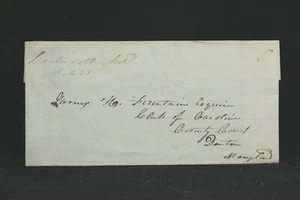 James H. Fountain Esquire
Clerk of Caroline
County Court
Denton
Maryland